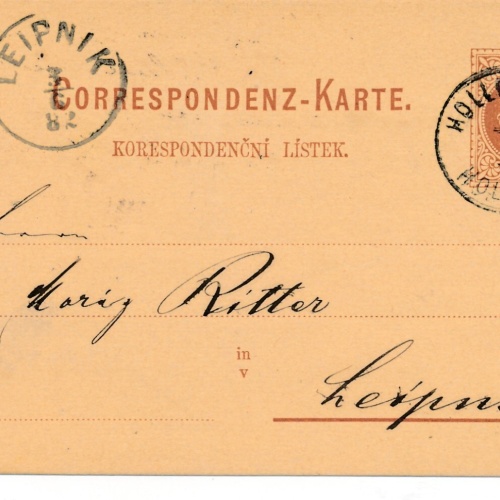 LEIPNIK
82
CORRESPONDENZ-KARTE.
KORESPONDENČNÍ LÍSTEK.
Herrn
Moriz Ritter
in
v